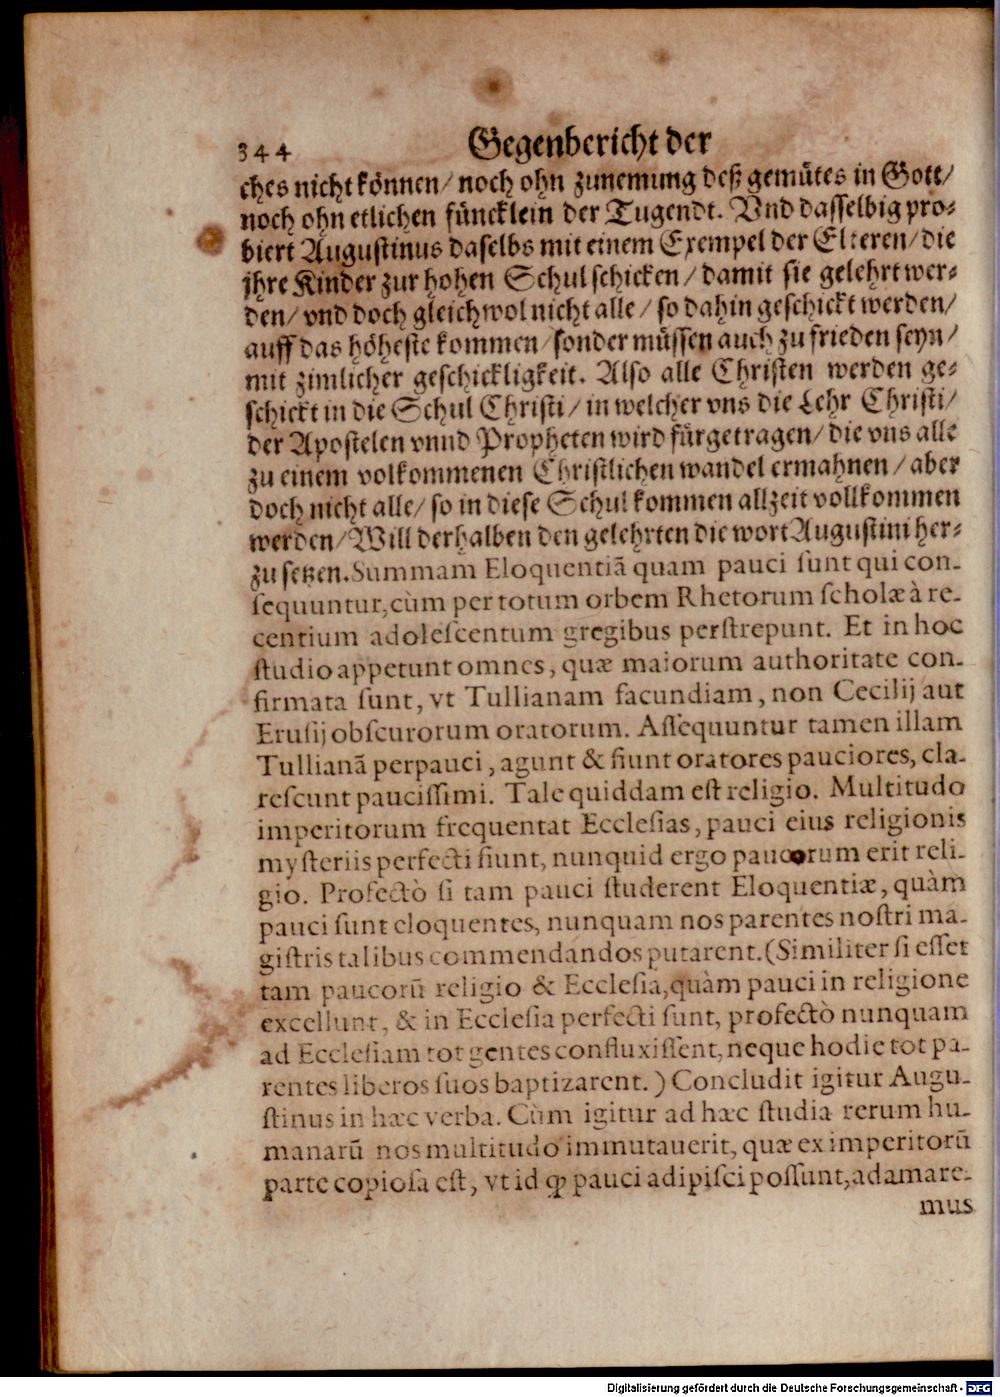 344 Gegenbericht der
ches nicht können/ noch ohn zunemung deß gemütes in Gott/
noch ohn etlichen füncklein der Tugendt. Vnd dasselbig pro-
biert Augustinus daselbs mit einem Exempel der Elteren/ die
jhre Kinder zur hohen Schul schicken/ damit sie gelehrt wer-
den/ vnd doch gleichwol nicht alle/ so dahin geschickt werden/
auff das höheste kommen/ sonder müssen auch zu frieden seyn/
mit zimlicher geschickligkeit. Also alle Christen werden ge-
schickt in die Schul Christi/ in welcher vns die Lehr Christi/
der Apostelen vnnd Propheten wird fürgetragen/ die vns alle
zu einem volkommenen Christlichen wandel ermahnen/ aber
doch nicht alle/ so in diese Schul kommen allzeit vollkommen
werden/ Will derhalben den gelehrten die wort Augustini her-
zu setzen. Summam Eloquentiã quam pauci sunt qui con-
sequuntur, cùm per totum orbem Rhetorum scholæ à re-
centium adolescentum gregibus perstrepunt. Et in hoc
studio appetunt omnes, quæ maiorum authoritate con-
firmata sunt, vt Tullianam facundiam, non Cecilij aut
Erusij obscurorum oratorum. Assequuntur tamen illam
Tullianã perpauci, agunt & fiunt oratores pauciores, cla-
rescunt paucissimi. Tale quiddam est religio. Multitudo
imperitorum frequentat Ecclesias, pauci eius religionis
mysteriis perfecti fiunt, nunquid ergo paucorum erit reli-
gio. Profectò si tam pauci studerent Eloquentiæ, quàm
pauci sunt eloquentes, nunquam nos parentes nostri ma-
gistris talibus commendandos putarent. (Similiter si esset
tam paucorũ religio & Ecclesia, quàm pauci in religione
excellunt, & in Ecclesia perfecti sunt, profectò nunquam
ad Ecclesiam tot gentes confluxissent, neque hodie tot pa-
rentes liberos suos baptizarent. ) Concludit igitur Augu-
stinus in hæc verba. Cùm igitur ad hæc studia rerum hu-
manarũ nos multitudo imminutauerit, quæ ex imperitorũ
parte copiosa est, vt id ꝙ pauci adipisci possunt, adamare-
mus
Digitalisierung gefördert durch die Deutsche Forschungsgemeinschaft - DFG